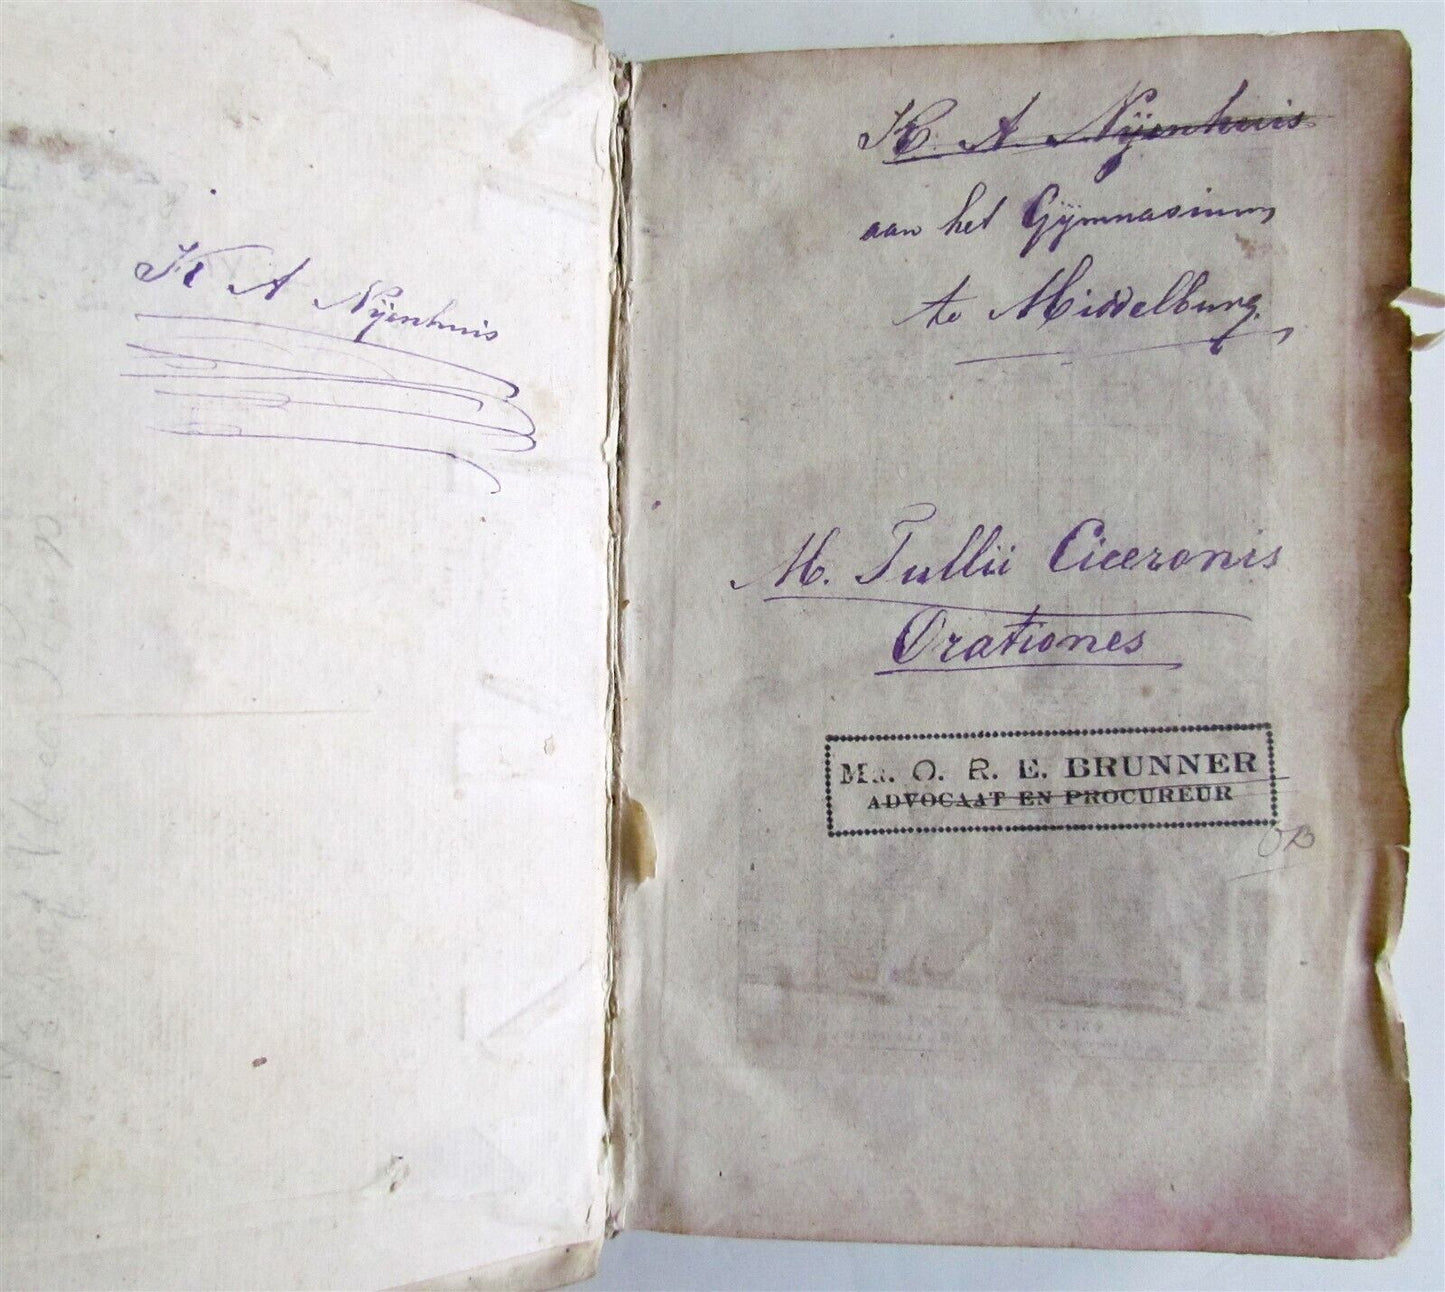 K A Nÿenhuis
K. A. Nÿenhuis
aan het Gÿmnasium
te Middelburg.
M. Tullii Ciceronis
Orationes
Mr. O. R. E. BRUNNER
ADVOCAAT EN PROCUREUR
OB